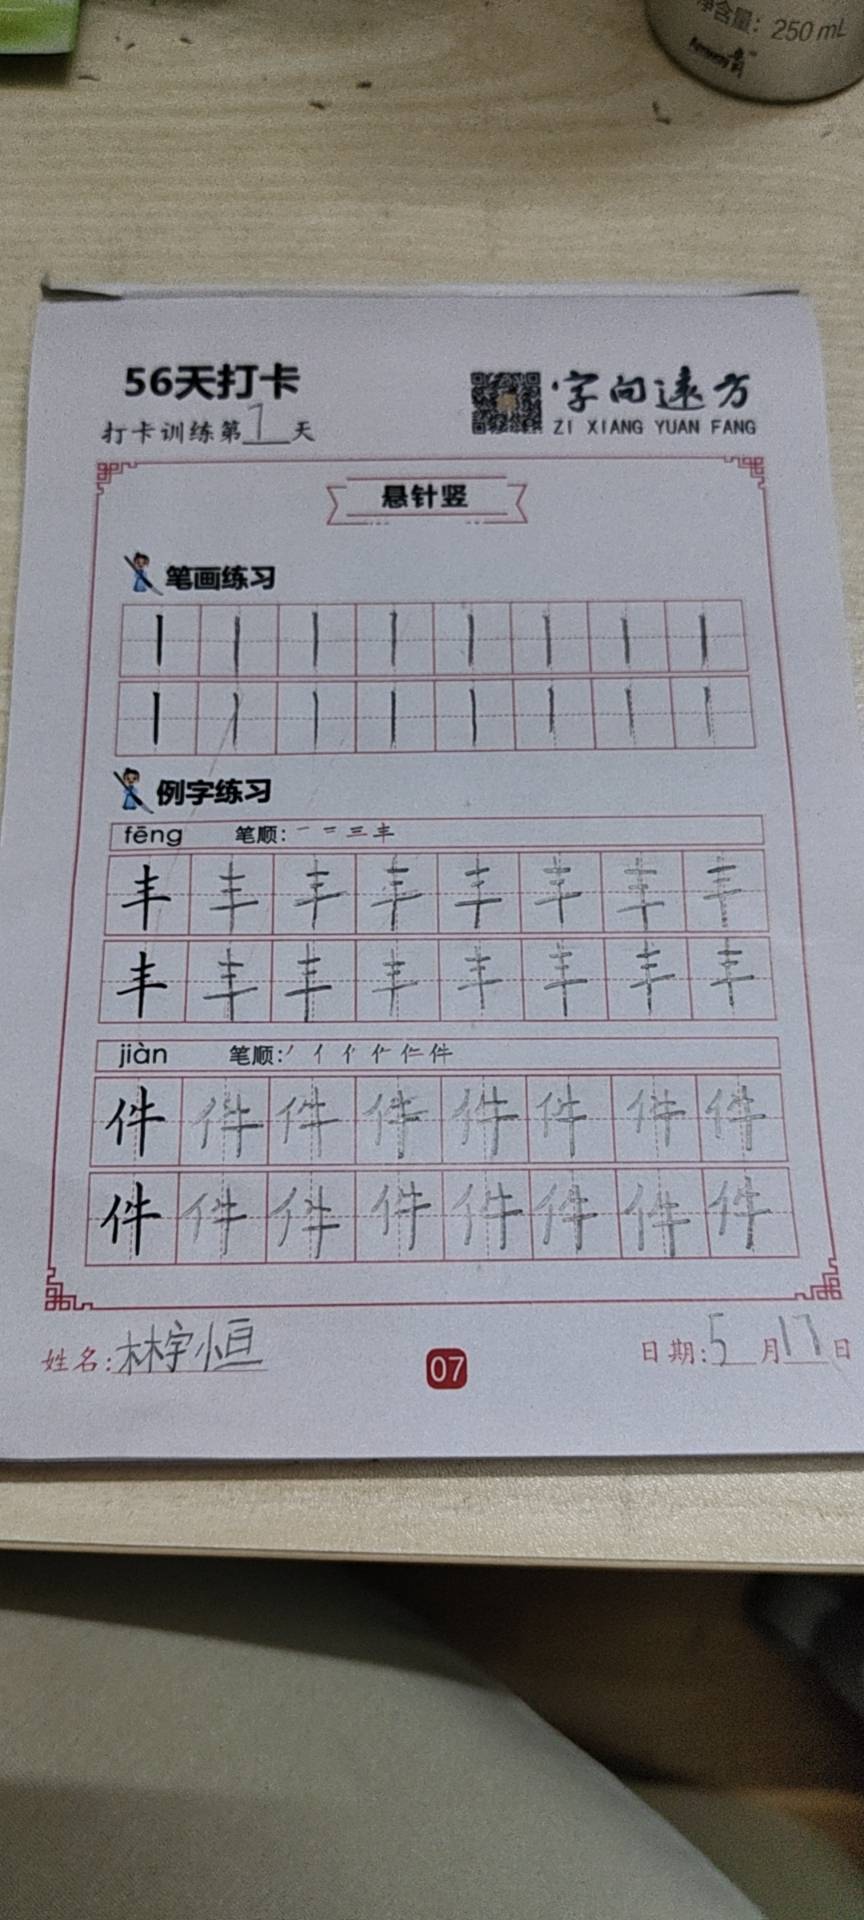 净含量：250mL
56天打卡
打卡训练第7天
字向远方
ZI XIANG YUAN FANG
悬针竖
笔画练习
丨丨丨丨丨丨丨丨
丨丨丨丨丨丨丨丨
例字练习
fēng 笔顺：一 二 三 丰
丰丰丰丰丰丰丰丰
丰丰丰丰丰丰丰丰
jiàn 笔顺：
件件件件件件件件
件件件件件件件件
姓名：林宇恒
07
日期：5月17日